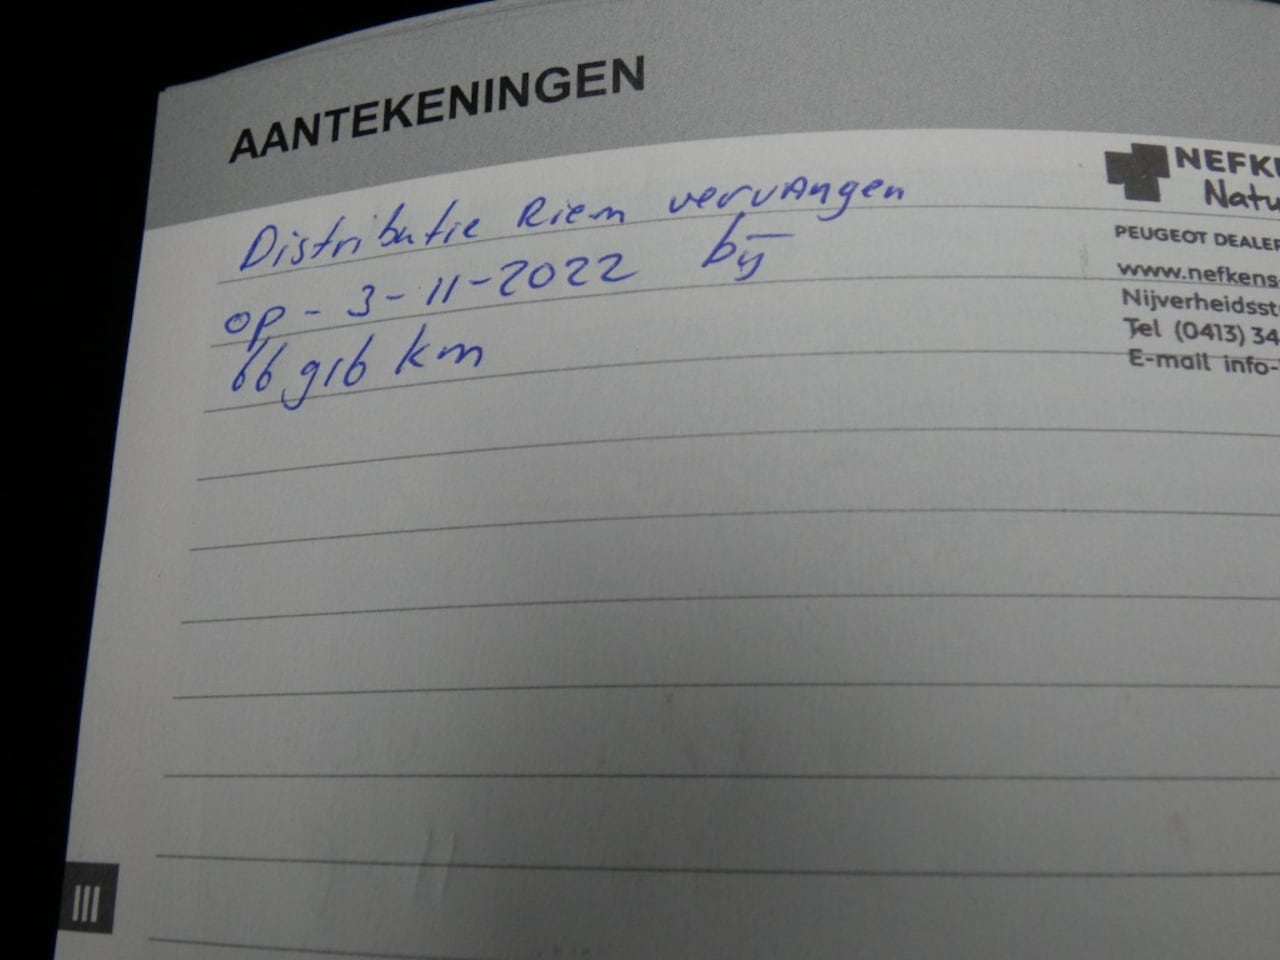 AANTEKENINGEN
Distributie Riem vervangen
op - 3-11-2022 bij
66916 km
NEFKE
Natu
PEUGEOT DEALER
www.nefkens
Nijverheidsst
Tel (0413) 34
E-mail info-
III